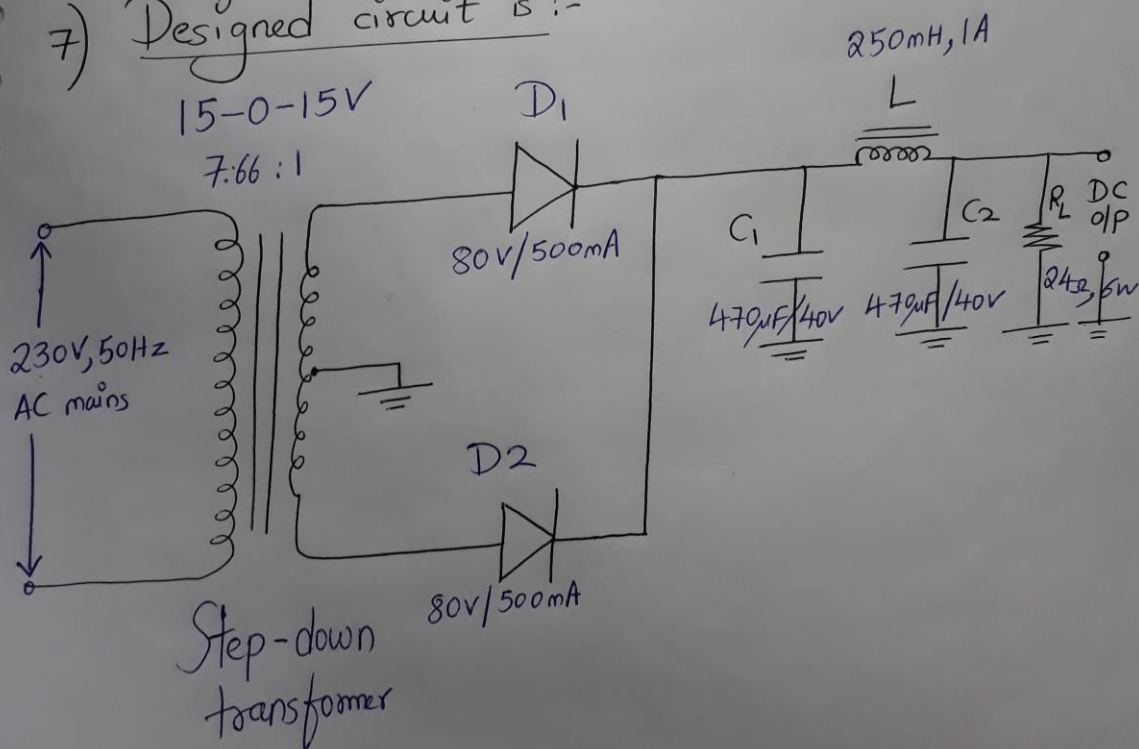 7) Designed circuit is :-
250mH, 1A
L
15-0-15V
7.66 : 1
D1
80V/500mA
C1
470μF/40V
C2
470μF/40V
RL
24Ω, 6W
DC
O/P
230V, 50Hz
AC mains
D2
80V/500mA
Step-down
transformer